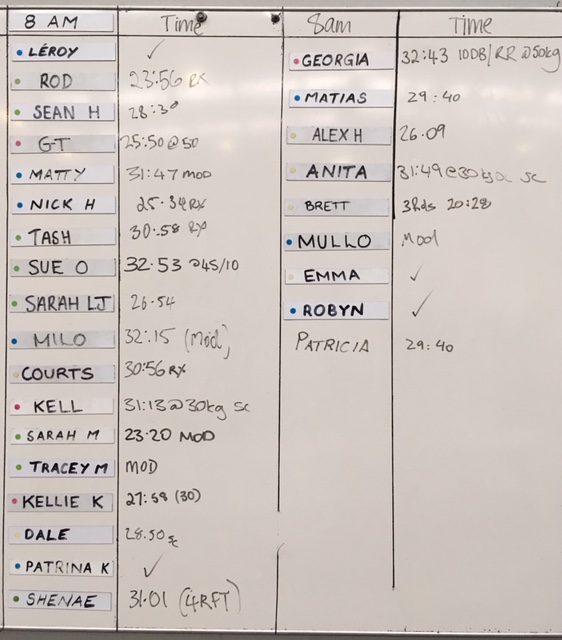 8 AM Time
LÉROY ✓
ROD 23:56 RX
SEAN H 28:30
GT 25:50 @ 50
MATTY 31:47 MOD
NICK H 25.34 RX
TASH 30:58 RX
SUE O 32.53 @45/10
SARAH LJ 26.54
MILO 32:15 (Mod)
COURTS 30:56 RX
KELL 31:13 @ 30kg Sc
SARAH M 23.20 MOD
TRACEY M MOD
KELLIE K 27:58 (30)
DALE 28.50 Sc
PATRINA K ✓
SHENAE 31.01 (4RFT)
8am Time
GEORGIA 32:43 10DB/RR @50kg
MATIAS 29:40
ALEX H 26.09
ANITA 31:49 @ 30kg Sc
BRETT 3Rds 20:28
MULLO Mod
EMMA ✓
ROBYN ✓
PATRICIA 29:40